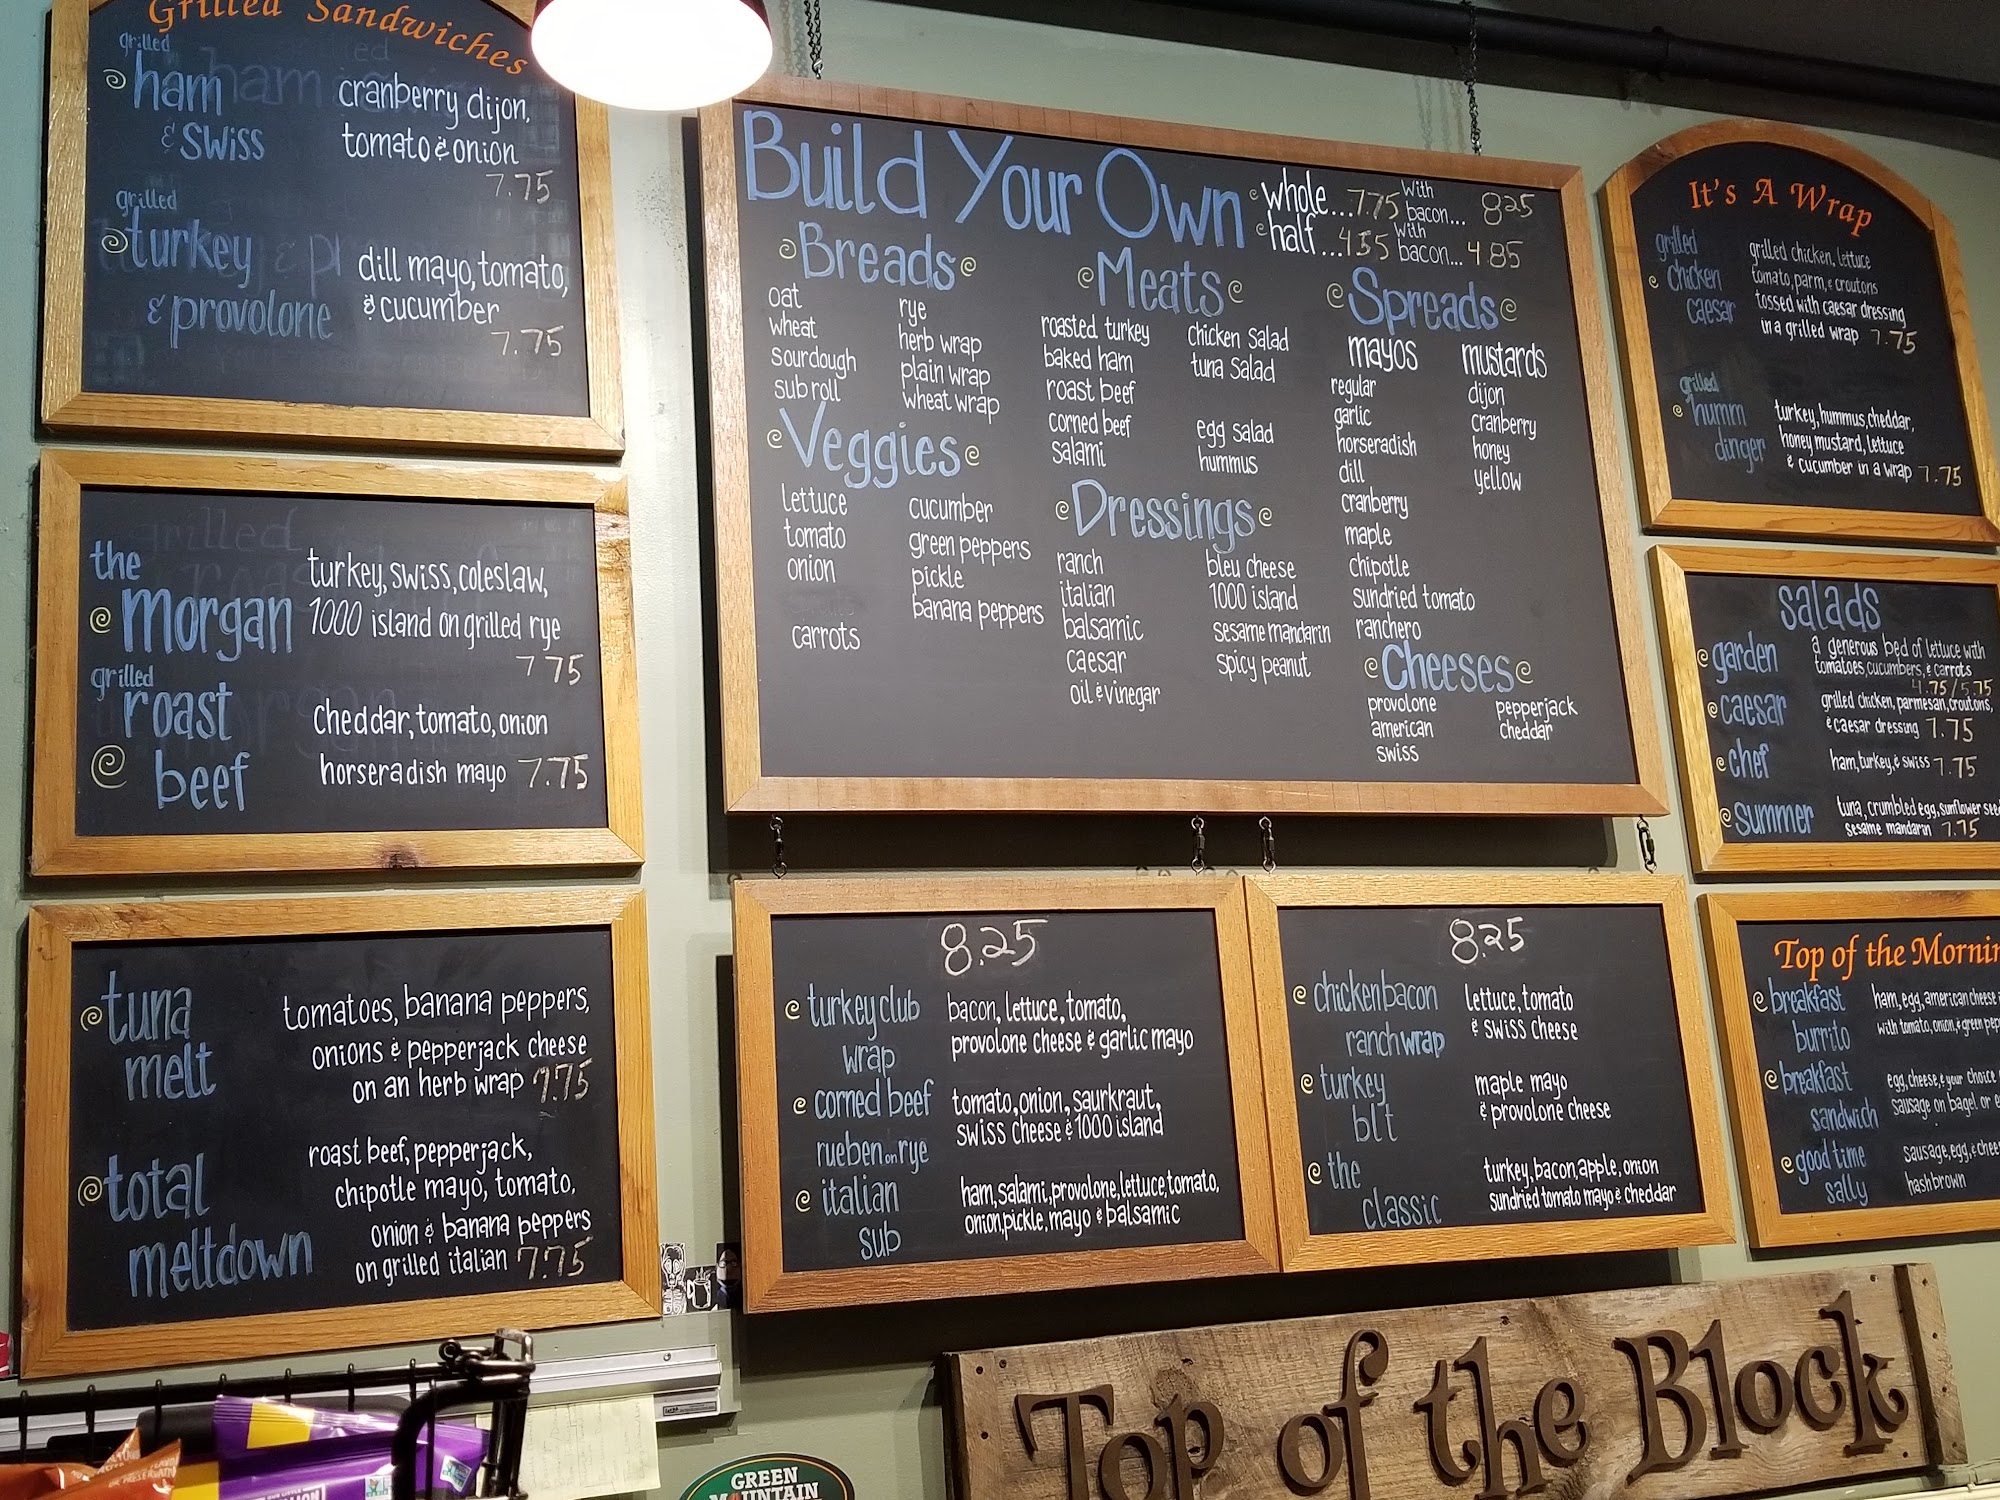 Grilled Sandwiches
grilled
ham
& swiss
cranberry dijon,
tomato & onion
7.75
grilled
turkey
& provolone
dill mayo, tomato,
& cucumber
7.75
the
morgan
turkey, swiss, coleslaw,
1000 island on grilled rye
7.75
grilled
roast
beef
cheddar, tomato, onion
horseradish mayo 7.75
tuna
melt
tomatoes, banana peppers,
onions & pepperjack cheese
on an herb wrap 7.75
total
meltdown
roast beef, pepperjack,
chipotle mayo, tomato,
onion & banana peppers
on grilled italian 7.75
Build Your Own
whole...7.75 with bacon... 8.25
half...4.55 with bacon...4.85
Breads
oat
wheat
sourdough
sub roll
rye
herb wrap
plain wrap
wheat wrap
Veggies
lettuce
tomato
onion
carrots
cucumber
green peppers
pickle
banana peppers
Meats
roasted turkey
baked ham
roast beef
corned beef
salami
chicken salad
tuna salad
egg salad
hummus
Dressings
ranch
italian
balsamic
caesar
oil & vinegar
bleu cheese
1000 island
sesame mandarin
spicy peanut
Spreads
mayos
regular
garlic
horseradish
dill
cranberry
maple
chipotle
sundried tomato
ranchero
mustards
dijon
cranberry
honey
yellow
Cheeses
provolone
american
swiss
pepperjack
cheddar
8.25
turkey club
wrap
bacon, lettuce, tomato,
provolone cheese & garlic mayo
corned beef
rueben on rye
tomato, onion, saurkraut,
swiss cheese & 1000 island
italian
sub
ham, salami, provolone, lettuce, tomato,
onion, pickle, mayo & balsamic
8.25
chicken bacon
ranch wrap
lettuce, tomato
& swiss cheese
turkey
blt
maple mayo
& provolone cheese
the
classic
turkey, bacon, apple, onion
sundried tomato mayo & cheddar
It's A Wrap
grilled
chicken
caesar
grilled chicken, lettuce
tomato, parm, & croutons
tossed with caesar dressing
in a grilled wrap 7.75
grilled
humm
dinger
turkey, hummus, cheddar,
honey mustard, lettuce
& cucumber in a wrap 7.75
salads
garden
a generous bed of lettuce with
tomatoes, cucumbers, & carrots
4.75/5.75
caesar
grilled chicken, parmesan, croutons,
& caesar dressing 7.75
chef
ham, turkey, & swiss 7.75
summer
tuna, crumbled egg, sunflower
sesame mandarin 7.75
Top of the
breakfast
burrito
ham, egg, american cheese
with tomato, onion, & green
breakfast
sandwich
egg, cheese, & your choice
sausage on bagel or
good time
sally
sausage, egg, &
hashbrown
Top of the Block
GREEN
MOUNTAIN